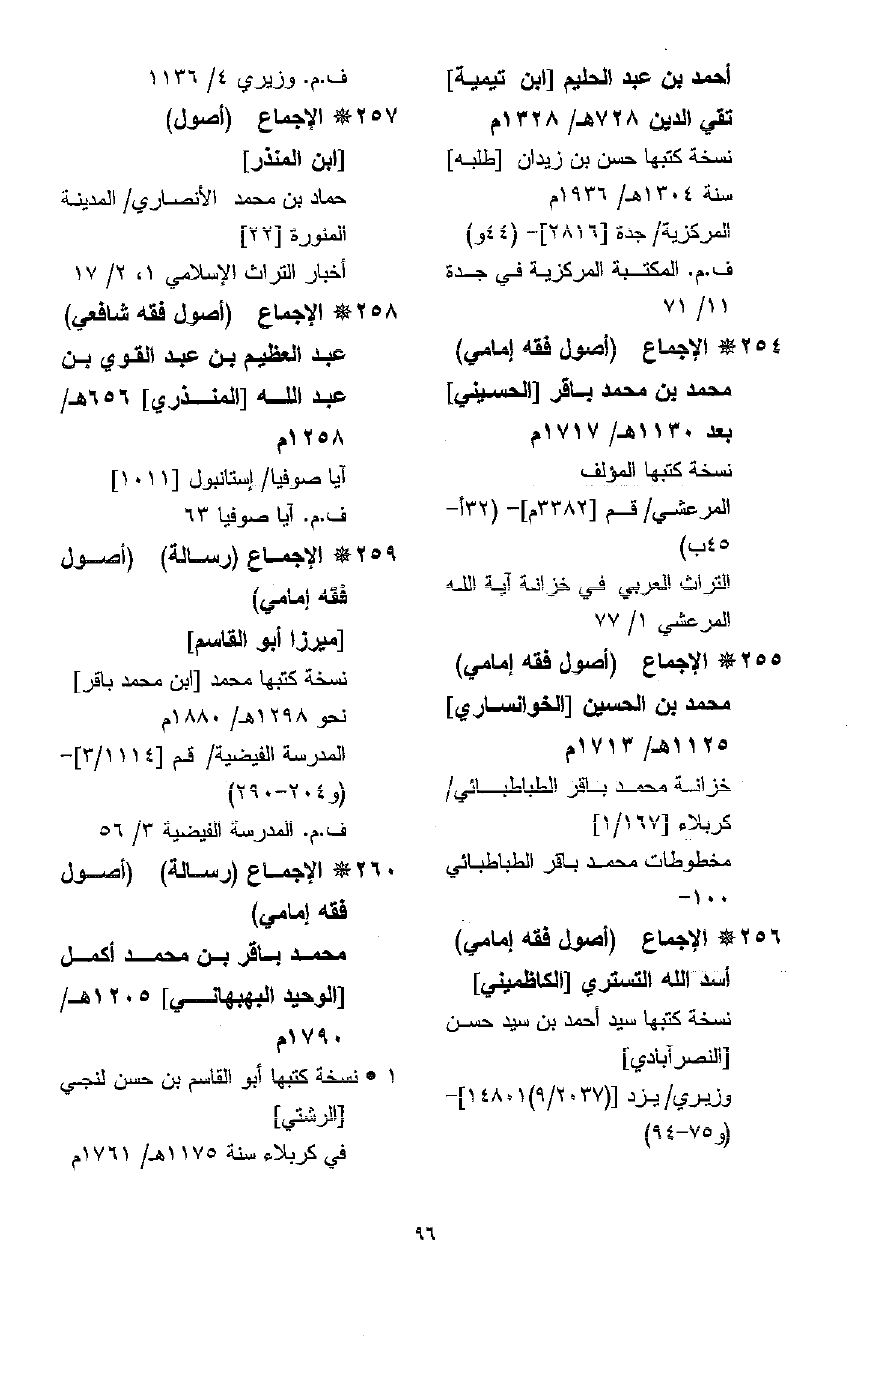 أحمد بن عبد الحليم [ابن تيمية]
تقي الدين ٧٢٨هـ/ ١٣٢٨م
نسخة كتبها حسن بن زيدان [طلبه]
سنة ١٣٠٤هـ/ ١٩٣٦م
المركزية/ جدة [٢٨١٦]- (٤٤و)
ف.م. المكتبة المركزية في جدة
١١/ ٧١
٢٥٤* الإجماع (أصول فقه إمامي)
محمد بن محمد باقر [الحسيني]
بعد ١١٣٠هـ/ ١٧١٧م
نسخة كتبها المؤلف
المرعشي/ قم [٣٣٨٢م]- (٣٢أ-
٤٥ب)
التراث العربي في خزانة آية الله
المرعشي ١/ ٧٧
٢٥٥* الإجماع (أصول فقه إمامي)
محمد بن الحسين [الخوانساري]
١١٢٥هـ/ ١٧١٣م
خزانة محمد باقر الطباطبائي/
كربلاء [١/١٦٧]
مخطوطات محمد باقر الطباطبائي
١٠٠-
٢٥٦* الإجماع (أصول فقه إمامي)
أسد الله التستري [الكاظميني]
نسخة كتبها سيد أحمد بن سيد حسن
[النصرآبادي]
وزيري/ يزد [(٩/٢٠٣٧)١٤٨٠١]-
(و٧٥-٩٤)
ف.م. وزيري ٤/ ١١٣٦
٢٥٧* الإجماع (أصول)
[ابن المنذر]
حماد بن محمد الأنصاري/ المدينة
المنورة [٢٢]
أخبار التراث الإسلامي ١، ٢/ ١٧
٢٥٨* الإجماع (أصول فقه شافعي)
عبد العظيم بن عبد القوي بن
عبد الله [المنذري] ٦٥٦هـ/
١٢٥٨م
آيا صوفيا/ إستانبول [١٠١١]
ف.م. آيا صوفيا ٦٣
٢٥٩* الإجماع (رسالة) (أصول
فقه إمامي)
[ميرزا أبو القاسم]
نسخة كتبها محمد [ابن محمد باقر]
نحو ١٢٩٨هـ/ ١٨٨٠م
المدرسة الفيضية/ قم [٣/١١١٤]-
(و٢٠٤-٢٩٠)
ف.م. المدرسة الفيضية ٣/ ٥٦
٢٦٠* الإجماع (رسالة) (أصول
فقه إمامي)
محمد باقر بن محمد أكمل
[الوحيد البهبهاني] ١٢٠٥هـ/
١٧٩٠م
١ • نسخة كتبها أبو القاسم بن حسن لنجي
[الرشتي]
في كربلاء سنة ١١٧٥هـ/ ١٧٦١م
٩٦